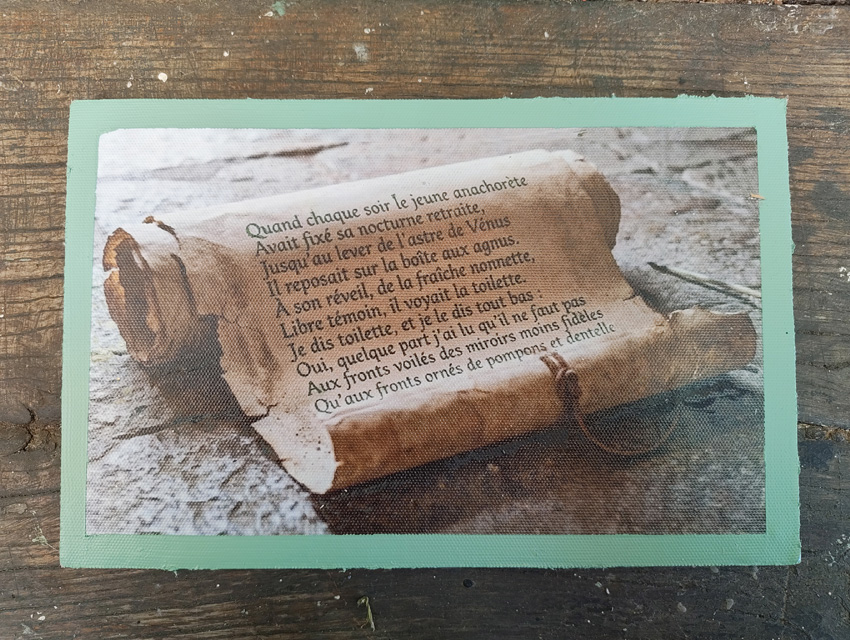 Quand chaque soir le jeune anachorète
Avait fixé sa nocturne retraite,
Jusqu'au lever de l'astre de Vénus
Il reposait sur la boîte aux agnus.
À son réveil, de la fraîche nonnette,
Libre témoin, il voyait la toilette.
Je dis toilette, et je le dis tout bas :
Oui, quelque part j'ai lu qu'il ne faut pas
Aux fronts voilés des miroirs moins fidèles
Qu'aux fronts ornés de pompons et dentelle